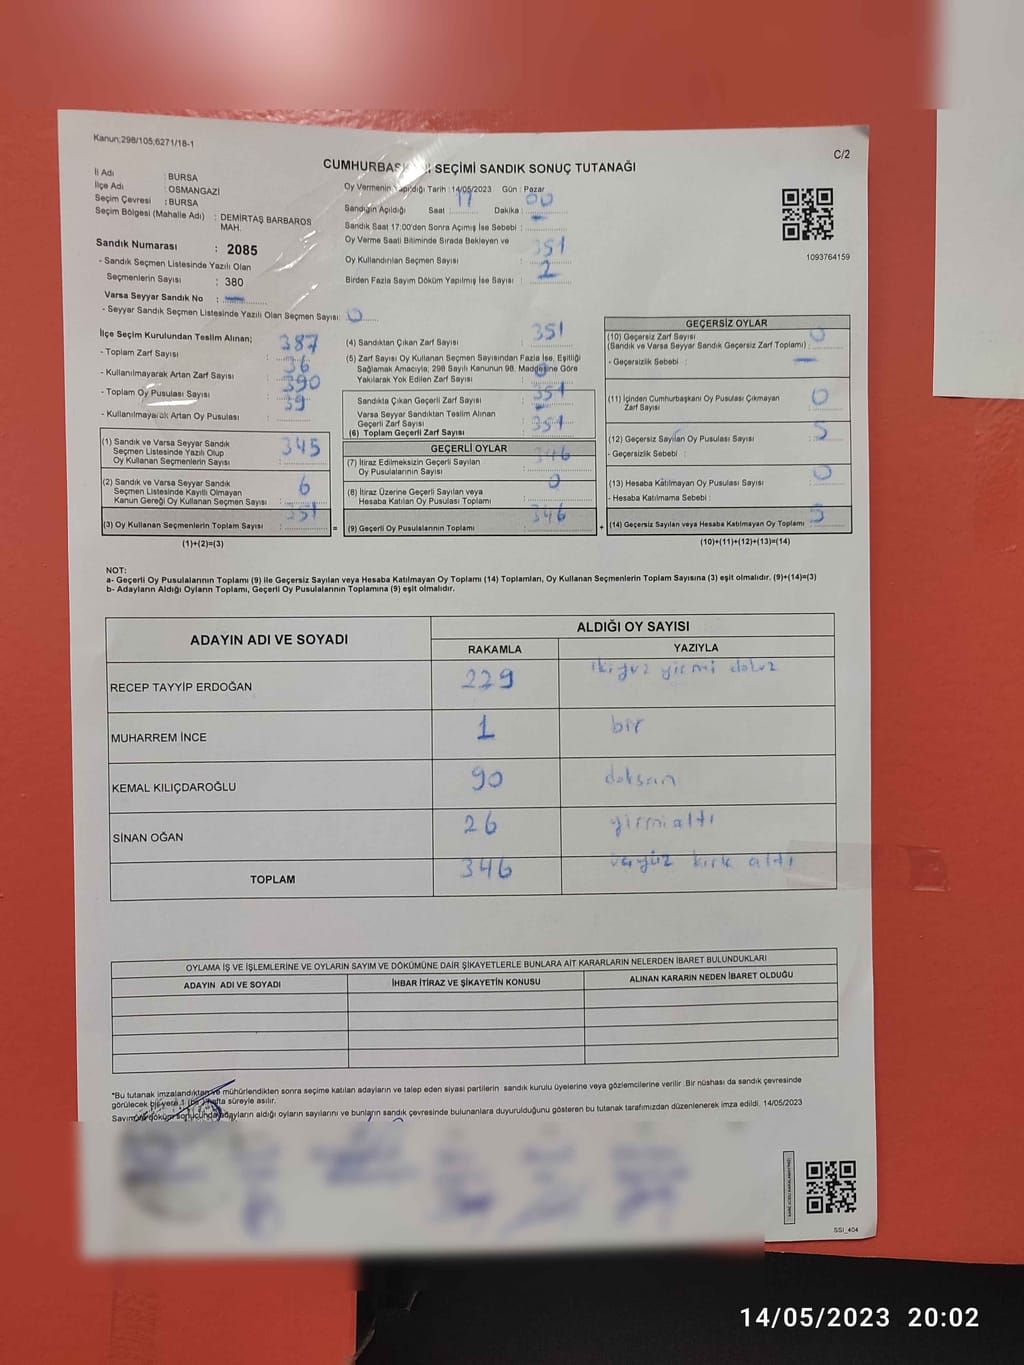 Kanun;298/105;6271/18-1
C/2
CUMHURBAŞ SEÇİMİ SANDIK SONUÇ TUTANAĞI
İl Adı : BURSA
İlçe Adı : OSMANGAZİ
Seçim Çevresi : BURSA
Seçim Bölgesi (Mahalle Adı) : DEMİRTAŞ BARBAROS MAH.
Sandık Numarası : 2085
- Sandık Seçmen Listesinde Yazılı Olan
Seçmenlerin Sayısı : 380
Varsa Seyyar Sandık No : —
- Seyyar Sandık Seçmen Listesinde Yazılı Olan Seçmen Sayısı: 0
Oy Vermenin Yapıldığı Tarih : 14/05/2023 Gün : Pazar
Sandığın Açıldığı Saat 17 Dakika 00
Sandık Saat 17:00'den Sonra Açımış İse Sebebi : —
Oy Verme Saati Bitiminde Sırada Bekleyen ve
Oy Kullandırılan Seçmen Sayısı : 351
Birden Fazla Sayım Döküm Yapılmış İse Sayısı : 2
1093764159
İlçe Seçim Kurulundan Teslim Alınan;
- Toplam Zarf Sayısı : 387
- Kullanılmayarak Artan Zarf Sayısı : 36
- Toplam Oy Pusulası Sayısı : 390
- Kullanılmayarak Artan Oy Pusulası : 39
(1) Sandık ve Varsa Seyyar Sandık
Seçmen Listesinde Yazılı Olup
Oy Kullanan Seçmenlerin Sayısı : 345
(2) Sandık ve Varsa Seyyar Sandık
Seçmen Listesinde Kayıtlı Olmayan
Kanun Gereği Oy Kullanan Seçmen Sayısı : 6
(3) Oy Kullanan Seçmenlerin Toplam Sayısı : 351
(1)+(2)=(3)
(4) Sandıktan Çıkan Zarf Sayısı : 351
(5) Zarf Sayısı Oy Kullanan Seçmen Sayısından Fazla İse, Eşitliği
Sağlamak Amacıyla, 298 Sayılı Kanunun 98. Maddesine Göre
Yakılarak Yok Edilen Zarf Sayısı : 0
Sandıkta Çıkan Geçerli Zarf Sayısı : 351
Varsa Seyyar Sandıktan Teslim Alınan
Geçerli Zarf Sayısı : —
(6) Toplam Geçerli Zarf Sayısı : 351
GEÇERLİ OYLAR
(7) İtiraz Edilmeksizin Geçerli Sayılan
Oy Pusulalarının Sayısı : 346
(8) İtiraz Üzerine Geçerli Sayılan veya
Hesaba Katılan Oy Pusulası Toplamı : 0
= (9) Geçerli Oy Pusulalarının Toplamı : 346
GEÇERSİZ OYLAR
(10) Geçersiz Zarf Sayısı
(Sandık ve Varsa Seyyar Sandık Geçersiz Zarf Toplamı) : 0
- Geçersizlik Sebebi : —
(11) İçinden Cumhurbaşkanı Oy Pusulası Çıkmayan
Zarf Sayısı : 0
(12) Geçersiz Sayılan Oy Pusulası Sayısı : 5
- Geçersizlik Sebebi :
(13) Hesaba Katılmayan Oy Pusulası Sayısı : 0
- Hesaba Katılmama Sebebi :
+ (14) Geçersiz Sayılan veya Hesaba Katılmayan Oy Toplamı : 5
(10)+(11)+(12)+(13)=(14)
NOT:
a- Geçerli Oy Pusulalarının Toplamı (9) ile Geçersiz Sayılan veya Hesaba Katılmayan Oy Toplamı (14) Toplamları, Oy Kullanan Seçmenlerin Toplam Sayısına (3) eşit olmalıdır. (9)+(14)=(3)
b- Adayların Aldığı Oyların Toplamı, Geçerli Oy Pusulalarının Toplamına (9) eşit olmalıdır.
ADAYIN ADI VE SOYADI ALDIĞI OY SAYISI
RAKAMLA YAZIYLA
RECEP TAYYİP ERDOĞAN 229 ikiyuz yirmi dokuz
MUHARREM İNCE 1 bir
KEMAL KILIÇDAROĞLU 90 doksan
SİNAN OĞAN 26 yirmialtı
TOPLAM 346 üçyüz kırk altı
OYLAMA İŞ VE İŞLEMLERİNE VE OYLARIN SAYIM VE DÖKÜMÜNE DAİR ŞİKAYETLERLE BUNLARA AİT KARARLARIN NELERDEN İBARET BULUNDUKLARI
ADAYIN ADI VE SOYADI İHBAR İTİRAZ VE ŞİKAYETİN KONUSU ALINAN KARARIN NEDEN İBARET OLDUĞU
"Bu tutanak imzalandıktan ve mühürlendikten sonra seçime katılan adayların ve talep eden siyasi partilerin sandık kurulu üyelerine veya gözlemcilerine verilir .Bir nüshası da sandık çevresinde
görülecek bir yere 1 (bir) hafta süreyle asılır.
Sayım ve döküm sonucunda adayların aldığı oyların sayılarını ve bunların sandık çevresinde bulunanlara duyurulduğunu gösteren bu tutanak tarafımızdan düzenlenerek imza edildi. 14/05/2023
SSİ_404
14/05/2023 20:02